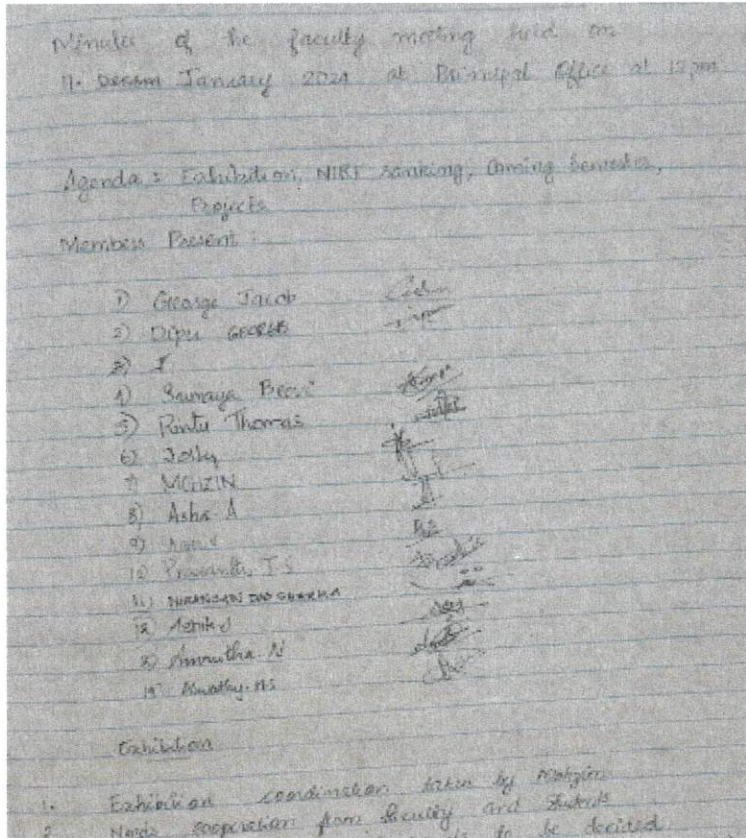 Minutes of the faculty meeting held on
11. Decem January 2024 at Principal Office at 12 pm
Agenda : Exhibition, NIRF ranking, Coming Semester,
Projects
Members Present :
1) George Jacob
2) Dipu GEORGE
3)
4) Sumaya Beevi
5) Pintu Thomas
6) Joshy
7) MOHZIN
8) Asha A
9)
10) Prasanth, T.S
11) NIRANJAN DEV SHARMA
12)
13) Amrutha. N
14) Aswathy. M S
Exhibition
1. Exhibition coordination taken by Mohzin
2. Needs cooperation from faculty and students
to be decided